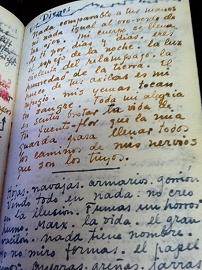 Diego:
Nada comparable a tus manos
ni nada igual al oro-verde de
tus ojos. Mi cuerpo se llena
de ti por días y días. eres
el espejo de la noche. la luz
violenta del relámpago. la
humedad de la tierra. El
hueco de tus axilas es mi
refugio. mis yemas tocan
tu sangre. Toda mi alegría
es sentir brotar tu vida de
tu fuente-flor que la mía
guarda para llenar todos
los caminos de mis nervios
que son los tuyos.
Hojas. navajas. armario. gorrión
Vendo todo en nada. no creo
en la ilusión. Fumas un horror
humo. Marx. la vida. el gran
vacilón. nada tiene nombre.
yo no miro formas. el papel
guerras. greñas. jarras